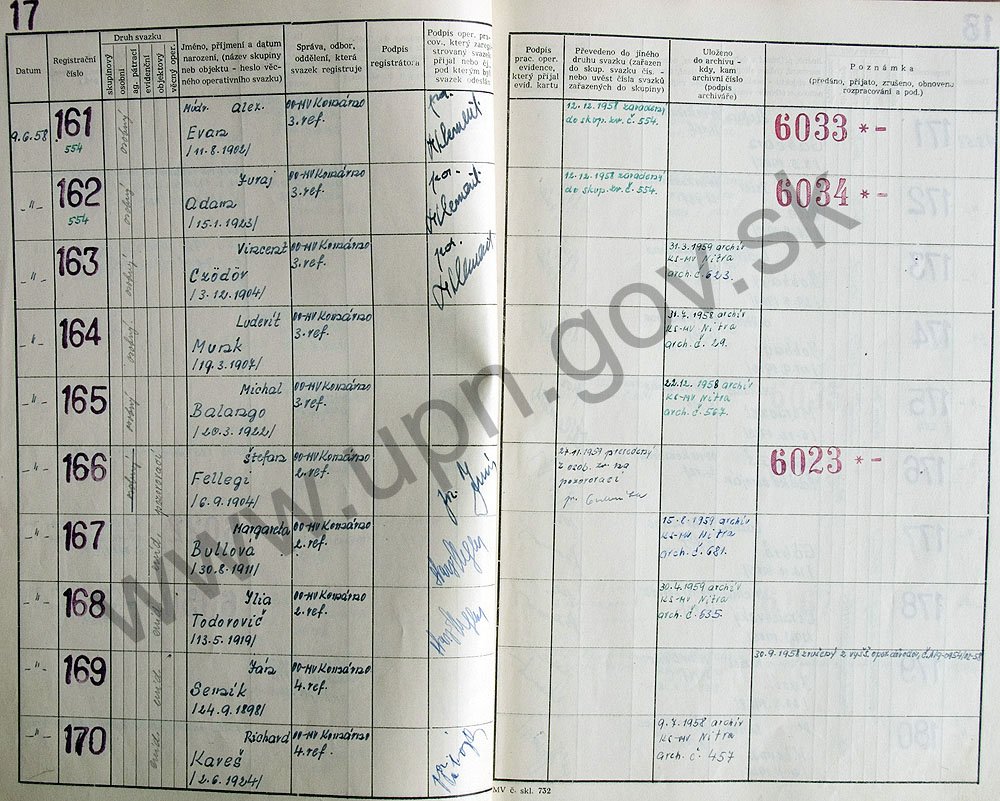 17
Datum
Registrační číslo
Druh svazku
skupinový
osobní
ag. pátrací
evidenční
objektový
věcný oper.
Jméno, příjmení a datum
narození, (název skupiny
neb objektu - heslo věc-
ného operativního svazku)
Správa, odbor,
oddělení, která
svazek registruje
Podpis
registrátora
Podpis oper. pra-
cov., který zareg-
istrovaný svazek
přijal nebo čj.,
pod kterým byl
svazek odeslán
Podpis
prac. oper.
evidence,
který přijal
evid. kartu
Převedeno do jiného
druhu svazku (zařazen
do skup. svazku čís. -
nebo uvést čísla svazků
zařazených do skupiny)
Uloženo
do archivu -
kdy, kam
archivní číslo
(podpis
archiváře)
Poznámka
(předáno, přijato, zrušeno, obnoveno
rozpracování a pod.)
9.6.58 161 554 osobný
Mudr. Alex.
Evan
/11.8.1902/
OO-MV Komárno
3.ref.
por. Klement
12.12.1958 zaradený
do skup. zv. č. 554.
6033 *-
-"- 162 554 osobný
Juraj
Adam
/15.1.1923/
OO-MV Komárno
3.ref.
por. Klement
12.12.1958 zaradený
do skup. zv. č. 554.
6034 *-
-"- 163 osobný
Vincent
Czödör
/3.12.1904/
OO-MV Komárno
3.ref.
por. Klement
31.3.1959 archív
KS-MV Nitra
arch. č. 623.
-"- 164 osobný
Ludevít
Murák
/19.3.1907/
OO-MV Komárno
3.ref.
KS-MV Nitra
arch. č. 29.
-"- 165 osobný
Michal
Balango
/20.3.1922/
OO-MV Komárno
3.ref.
22.12.1958 archív
KS-MV Nitra
arch. č. 567.
-"- 166 osobný pozorovací
Štefan
Fellegi
/6.9.1904/
OO-MV Komárno
2.ref.
z osob. zv. na
pozorovací
6023 *-
-"- 167 evid.
Margareta
Bullova
/30.8.1911/
OO-MV Komárno
2.ref.
archív
KS-MV Nitra
arch. č. 681.
-"- 168 evid.
Ilia
Todorovič
/13.5.1919/
OO-MV Komárno
2.ref.
30.4.1959 archív
KS-MV Nitra
arch. č. 635.
-"- 169 evid.
Ján
Semsik
/24.9.1898/
OO-MV Komárno
4.ref.
30.9.1958 zničený z
-"- 170 evid.
Richard
Kareš
/2.6.1924/
OO-MV Komárno
4.ref.
9.7.1958 archív
KS-MV Nitra
arch. č. 457
MV č. skl. 732
www.upn.gov.sk